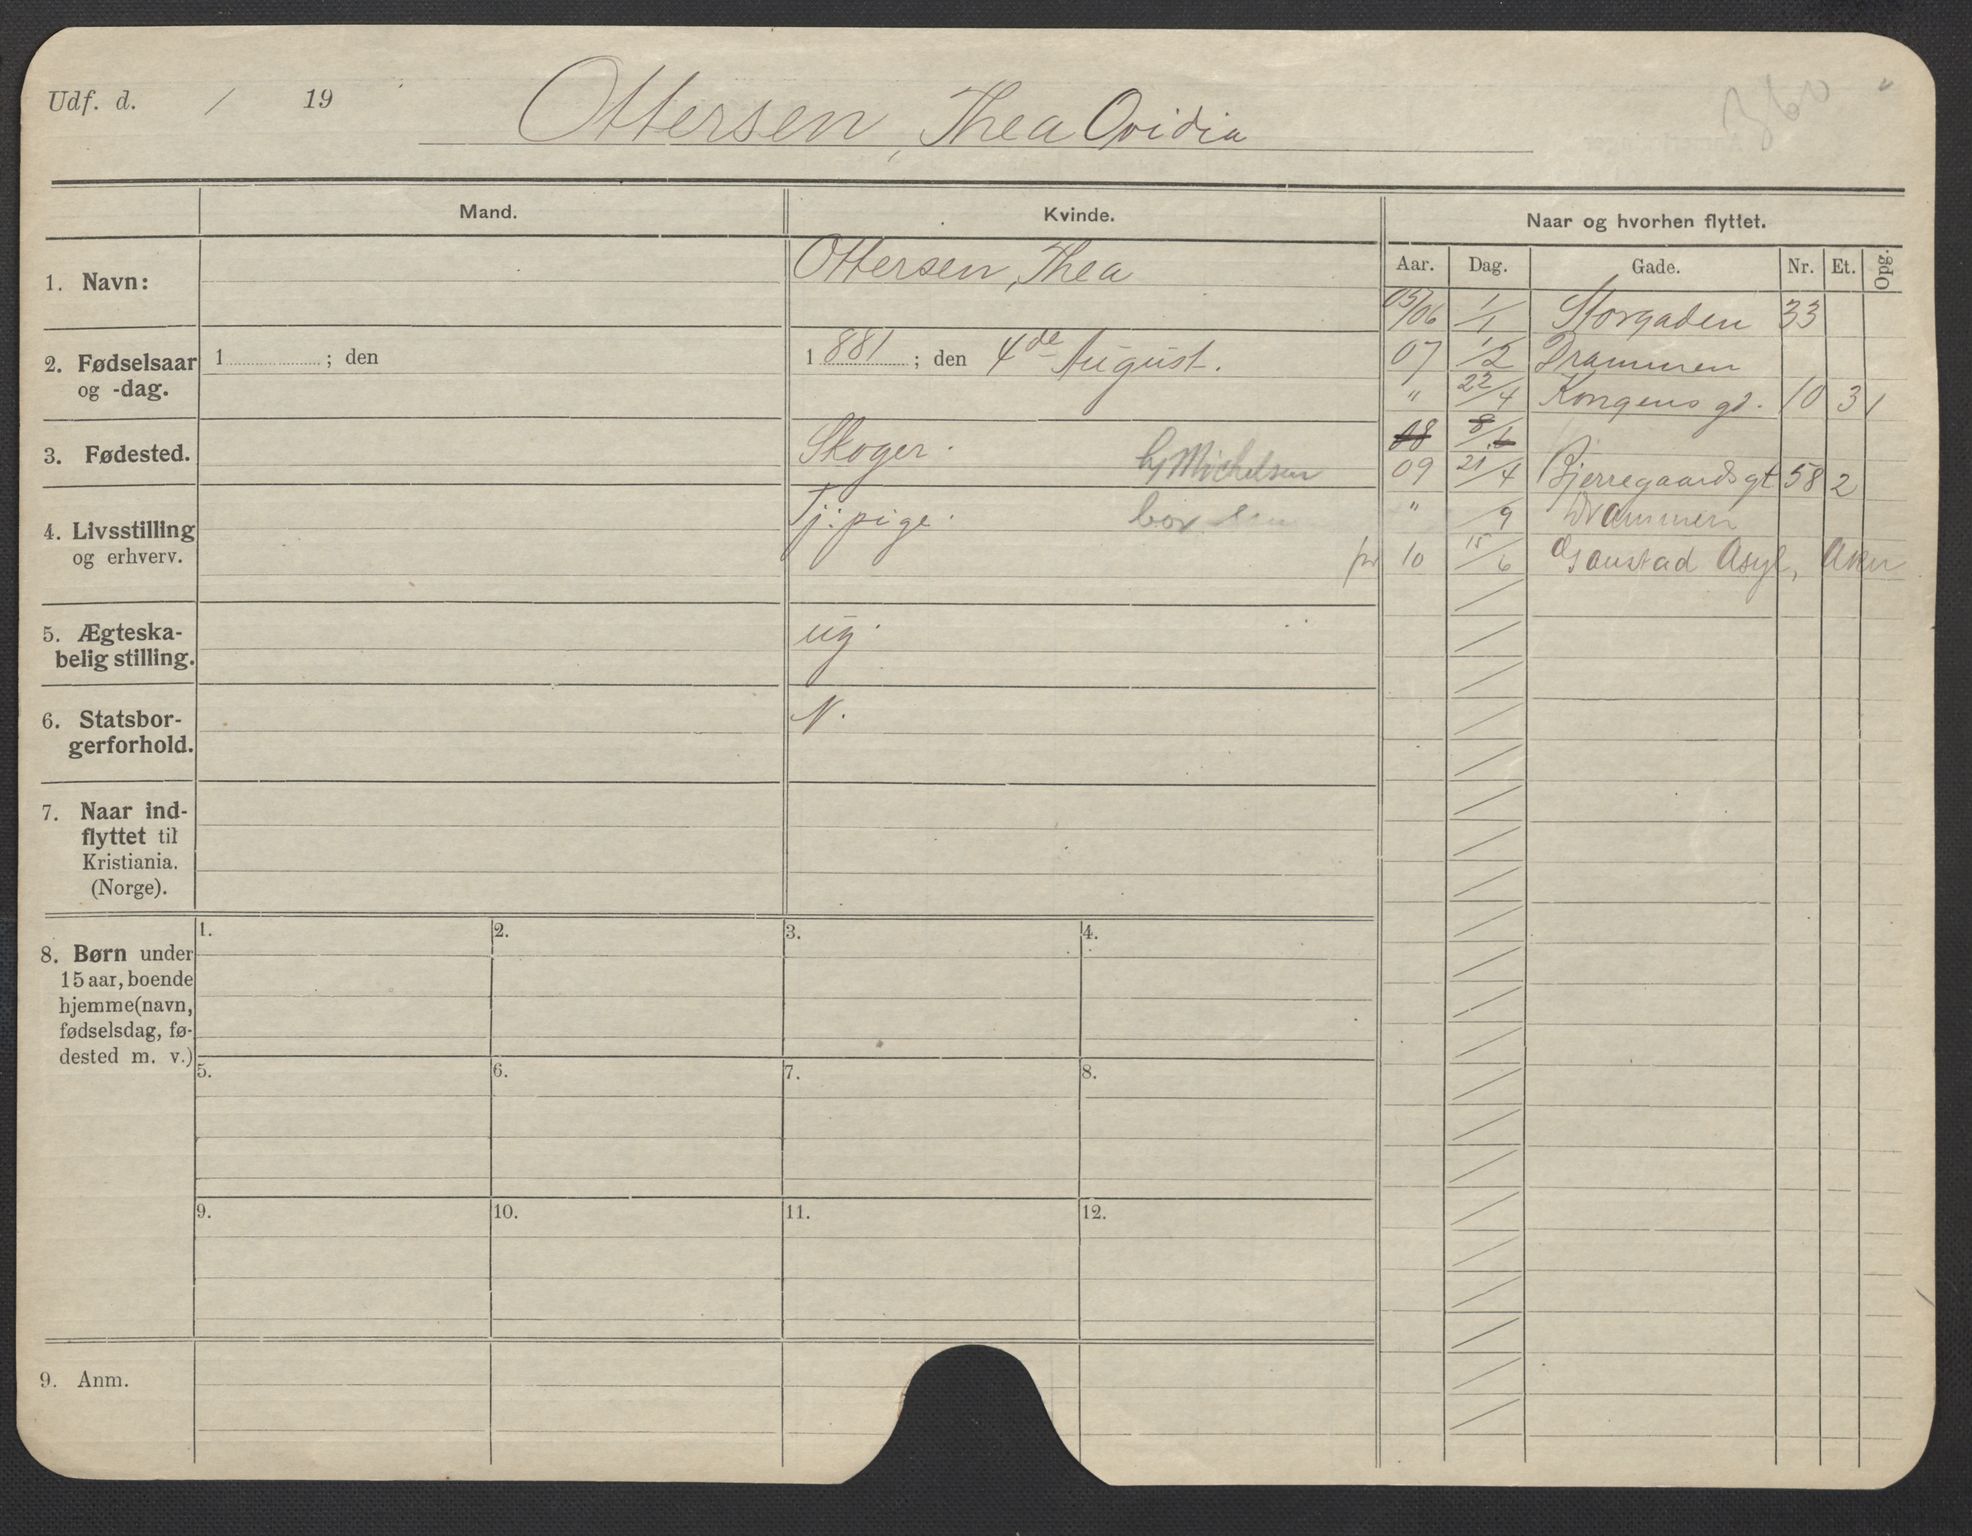 Udf. d. / 19
Ottersen, Thea Ovidia
Mand.
Kvinde.
Naar og hvorhen flyttet.
Aar. Dag. Gade. Nr. Et. Opg.
1. Navn:
Ottersen, Thea
2. Fødselsaar og -dag.
1 ; den
1881 ; den 4de August.
3. Fødested.
Skoger.
hj Michelsen
4. Livsstilling og erhverv.
Tj. pige.
bor
5. Ægteskabelig stilling.
ug.
6. Statsborgerforhold.
N.
7. Naar indflyttet til Kristiania. (Norge).
05/06 1/1 Storgaden 33
07 1/2 Drammen
" 22/4 Kongens gd. 10 3 1
08 8/1
09 21/4 Bjerregaardsgt 58 2
" /9 Drammen
pr 10 15/6 Gaustad Asyl, Aker
8. Børn under
15 aar, boende
hjemme (navn,
fødselsdag, fø-
dested m. v.)
1. 2. 3. 4.
5. 6. 7. 8.
9. 10. 11. 12.
9. Anm.